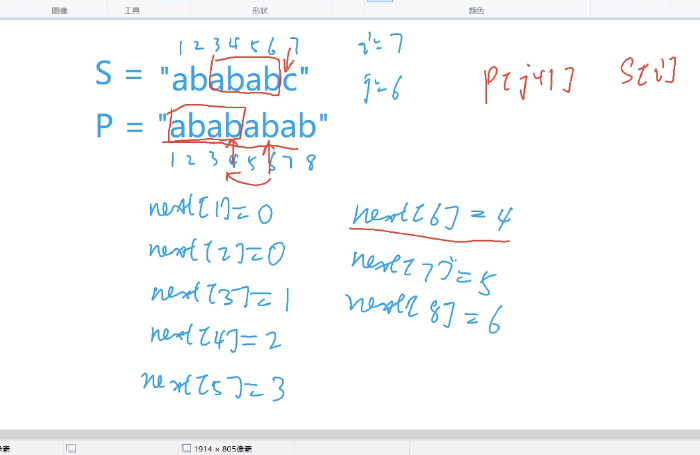 图像 工具 形状 颜色
1 2 3 4 5 6 7
S = "abababc"
i=7
j=6
P[j+1] S[i]
P = "abababab"
1 2 3 4 5 6 7 8
next[1]=0
next[2]=0
next[3]=1
next[4]=2
next[5]=3
next[6]=4
next[7]=5
next[8]=6
1914 × 805像素